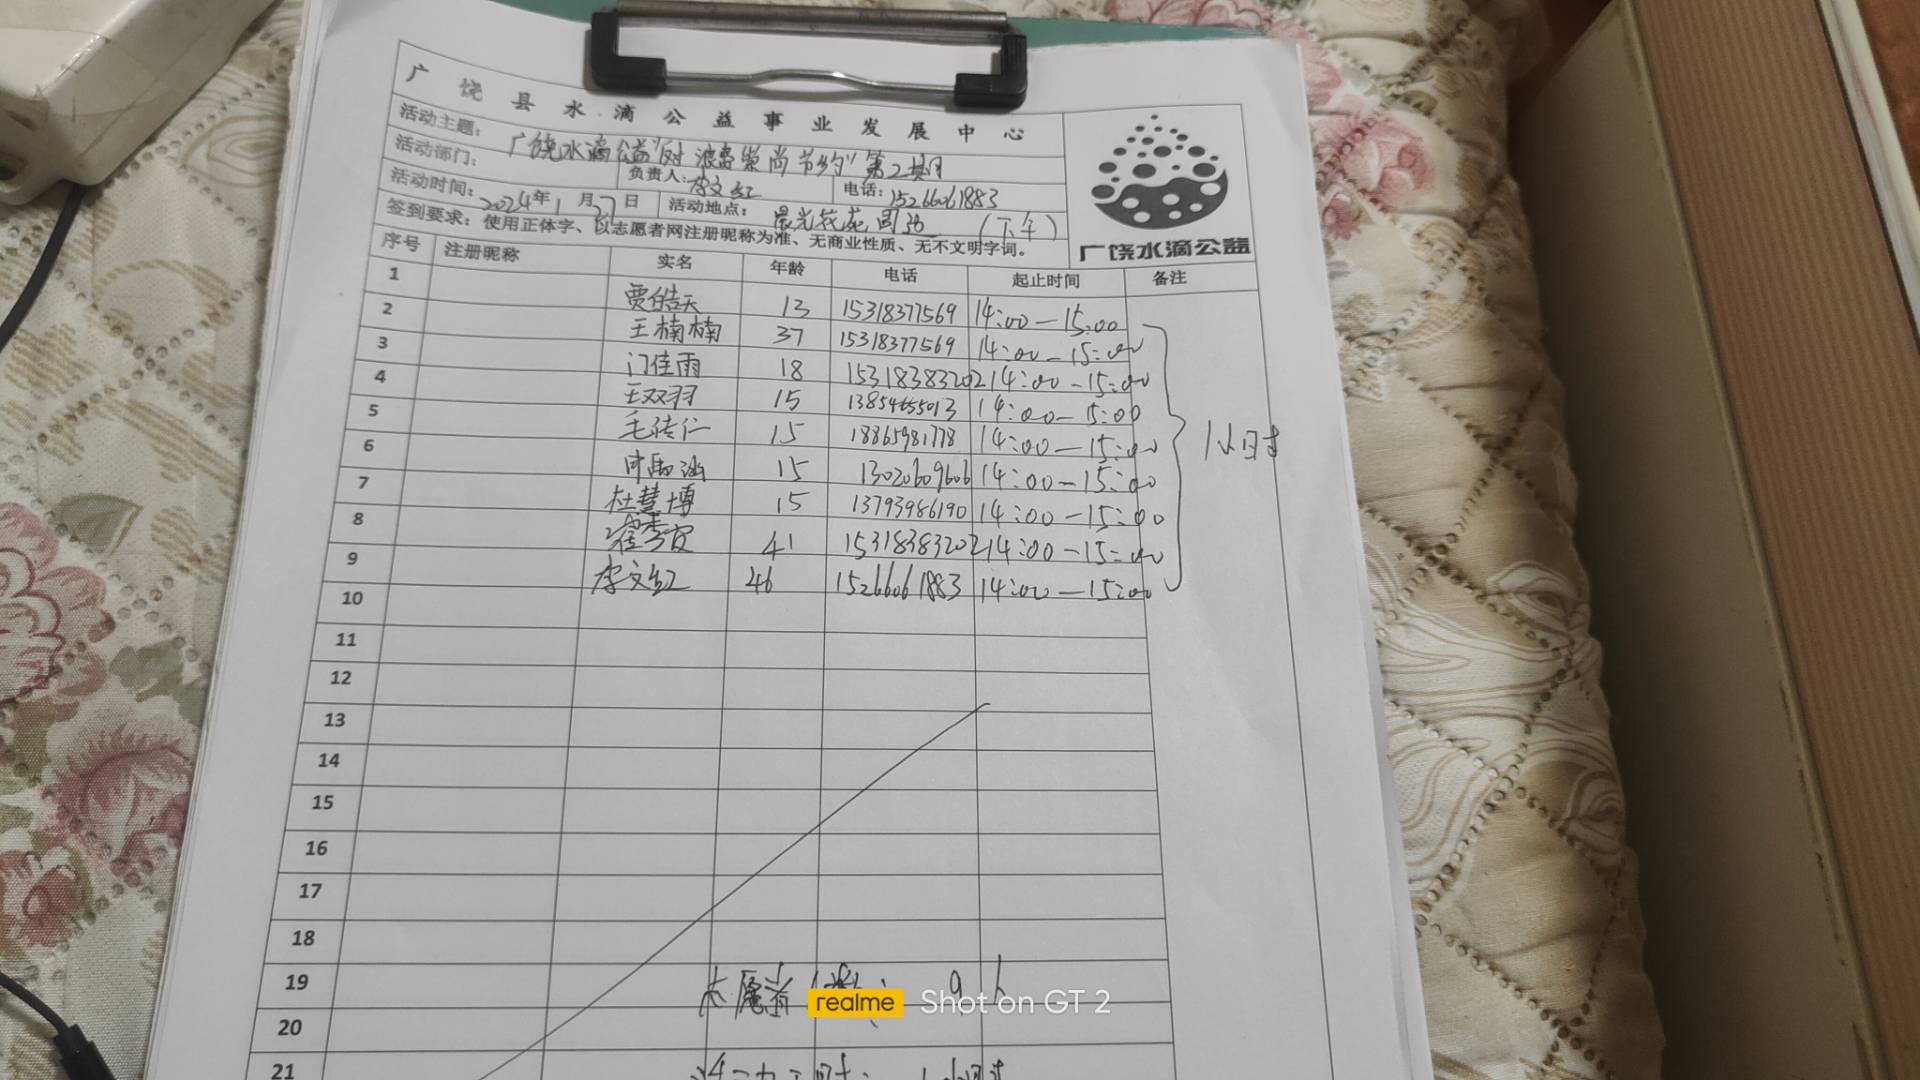 广饶县水滴公益事业发展中心
活动主题: 广饶水滴公益"反对浪费崇尚节约"第2期
活动部门: 负责人: 李文红 电话: 15266061883
活动时间: 2024年1月27日 活动地点: 晨光花苑周边 (下午)
签到要求: 使用正体字、以志愿者网注册昵称为准、无商业性质、无不文明字词。
广饶水滴公益
序号 注册昵称 实名 年龄 电话 起止时间 备注
1 贾皓天 13 15318377569 14:00—15:00
2 王楠楠 37 15318377569 14:00—15:00
3 门佳雨 18 15318383202 14:00—15:00
4 王双羽 15 14:00—15:00
5 15 18865981778 14:00—15:00
6 15 13020609606 14:00—15:00
7 杜慧博 15 13793986190 14:00—15:00
8 41 15318383202 14:00—15:00
9 李文红 46 15266061883 14:00—15:00
1小时
10
11
12
13
14
15
16
17
18
19 志愿者人数: 9人
20
21
realme Shot on GT 2